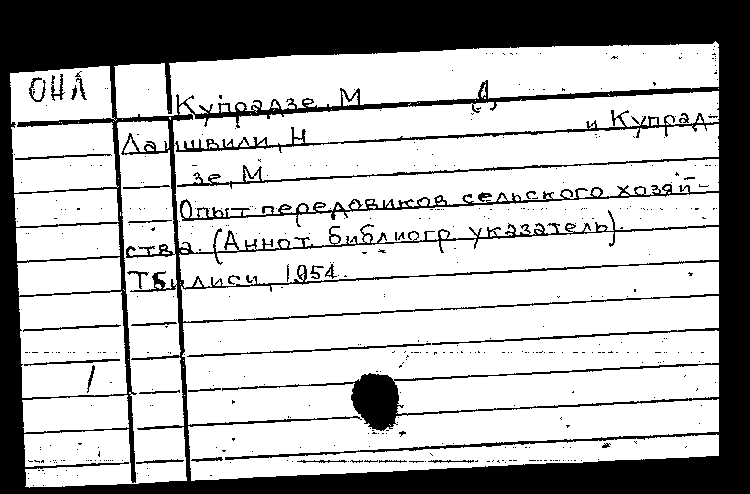 ОНЛ
Купрадзе, М. Д
Лаишвили, Н и Купрад-
зе, М
Опыт передовиков сельского хозяй-
ства. (Аннот. библиогр указатель).
Тбилиси, 1954.